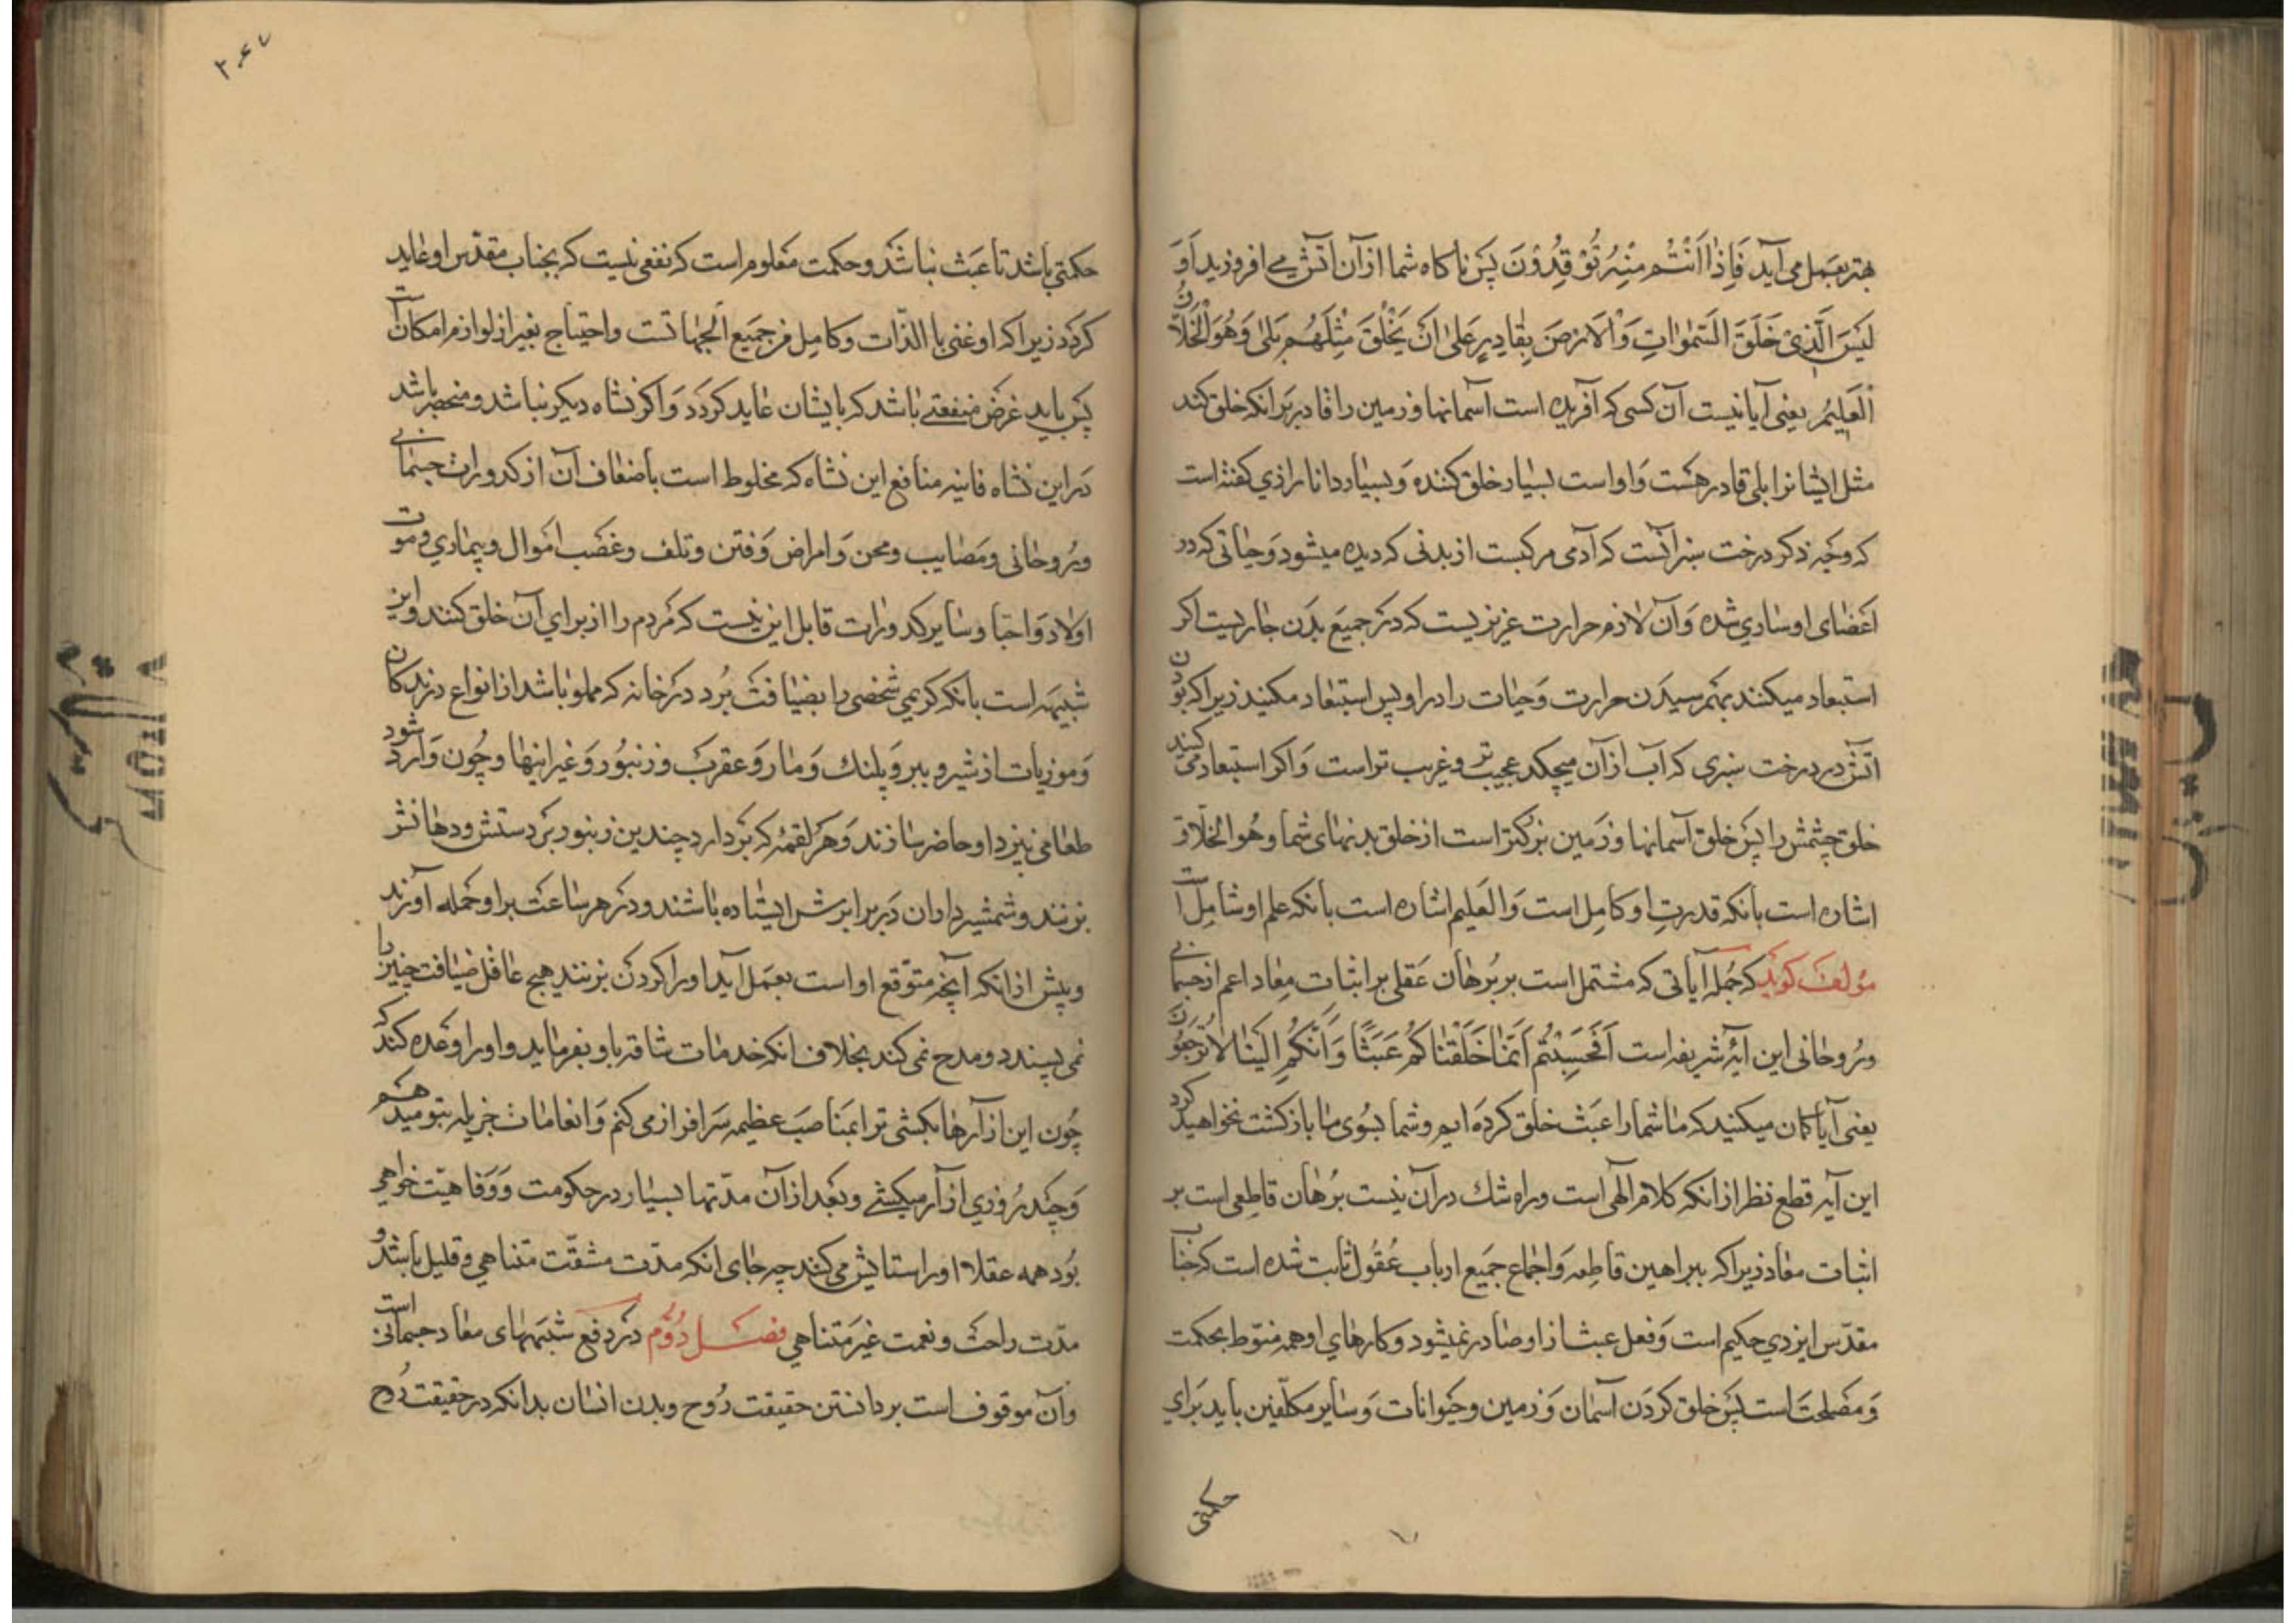 بهتر بعمل می آید فَاِذا اَنْتُمْ مِنْهُ تُوْقِدُوْنَ پس ناکاه شما ازآن آتش می افروزید اَوَ
لَیْسَ الَّذِیْ خَلَقَ السَّمٰوٰاتِ وَالْاَرْضَ بِقٰادِرٍ عَلیٰ اَنْ یَخْلُقَ مِثْلَهُمْ بَلیٰ وَهُوَ الْخَلاّٰقُ
الْعَلِیْمُ یعنی آیا نیست آن کسی که آفریده است آسمانها و زمین را قادر بر انکه خلق کند
مثل ایشانرا بلی قادر هست و او است بسیار خلق کننده و بسیار دانا رازی کفته است
که وجه ذکر درخت سبز آنست که آدمی مرکبست از بدنی که دیده میشود و حیاتی که در
اعضای او ساری شده و آن لازم حرارت غریزیست که در جمیع بدن جاریست اکر
استبعاد میکنند بهم رسیدن حرارت و حیات را در او پس استبعاد مکنید زیرا که بودن
آتش در درخت سبزی که آب ازآن میچکد عجیب تر و غریب تر است و اکر استبعاد می کنید
خلق چشمش را پس خلق آسمانها و زمین بزرکتر است از خلق بدنهای شما و هُو الخلاّق
اشاره است بانکه قدرت او کامل است والعلیم اشاره است بانکه علم او شامل است
مؤلف کوید که جمله آیاتی که مشتمل است بر برهان عقلی بر اثبات معاد اعم از جسمانی
و روحانی این آیه شریفه است اَفَحَسِبْتُمْ اَنَّمٰا خَلَقْنٰاکُمْ عَبَثًا وَاَنَّکُمْ اِلَیْنٰا لاٰ تُرْجَعُوْنَ
یعنی آیا کمان میکنید که ما شما را عبث خلق کرده ایم و شما بسوی ما بازکشت نخواهید کرد
این آیه قطع نظر ازانکه کلام الهی است و راه شک درآن نیست برهان قاطعی است بر
اثبات معاد زیرا که ببراهین قاطعه و اجماع جمیع ارباب عقول ثابت شده است که جناب
مقدس ایزدی حکیم است و فعل عبث از او صادر نمیشود و کارهای او همه منوط بحکمت
و مصلحت است پس خلق کردن آسمان و زمین و حیوانات و سایر مکلفین باید برای
حکمتی
حکمتی باشد تا عبث نباشد و حکمت معلوم است که نفعی نیست که بجناب مقدس او عاید
کردد زیرا که او غنی باالذّات و کامل فی جمیع الجهاتست و احتیاج بغیر از لوازم امکان است
پس باید غرض منفعتی باشد که بایشان عاید کردد و اکر نشاه دیکر نباشد و منحصر باشد
در این نشاه فانیه منافع این نشاه که مخلوط است باضعاف آن از کدورات جسمانی
و روحانی و مصایب و محن و امراض و فتن و تلف و غصب اموال و بیماری و موت
اولاد و احبا و سایر کدورات قابل این نیست که مردم را از برای آن خلق کنند و این
شبیه است بانکه کریمی شخصی را بضیافت برد در خانه که مملو باشد از انواع درندکان
و موزیات از شیر و ببر و پلنک و مار و عقرب و زنبور و غیر اینها و چون وارد شود
طعامی نیزد او حاضر سازند و هر لقمه که بردارد چندین زنبور بر دستش و دهانش
بزنند و شمشیر داران در برابرش ایستاده باشند و در هر ساعت بر او حمله آورند
و پیش ازانکه آنچه متوقع او است بعمل آید او را کردن بزنند هیج عاقل ضیافت چنین را
نمی پسندد و مدح نمی کند بخلاف انکه خدمات شاقه باو بفرماید و او را وعده کند که
چون این ازآرها بکشی ترا بمناصب عظیمه سرافراز می کنم و انعامات جزیله بتو میدهم
و چند روزی ازآر میکشی و بعد ازآن مدتها بسیار در حکومت و رفاهیت خواهی
بود همه عقلا او را ستایش می کنند چه جای انکه مدت مشقت متناهی و قلیل باشد و
مدت راحت و نعمت غیر متناهی فصل دوم در دفع شبهه‌های معاد جسمانی است
و آن موقوف است بر دانستن حقیقت روح و بدن انسان بدانکه در حقیقت روح